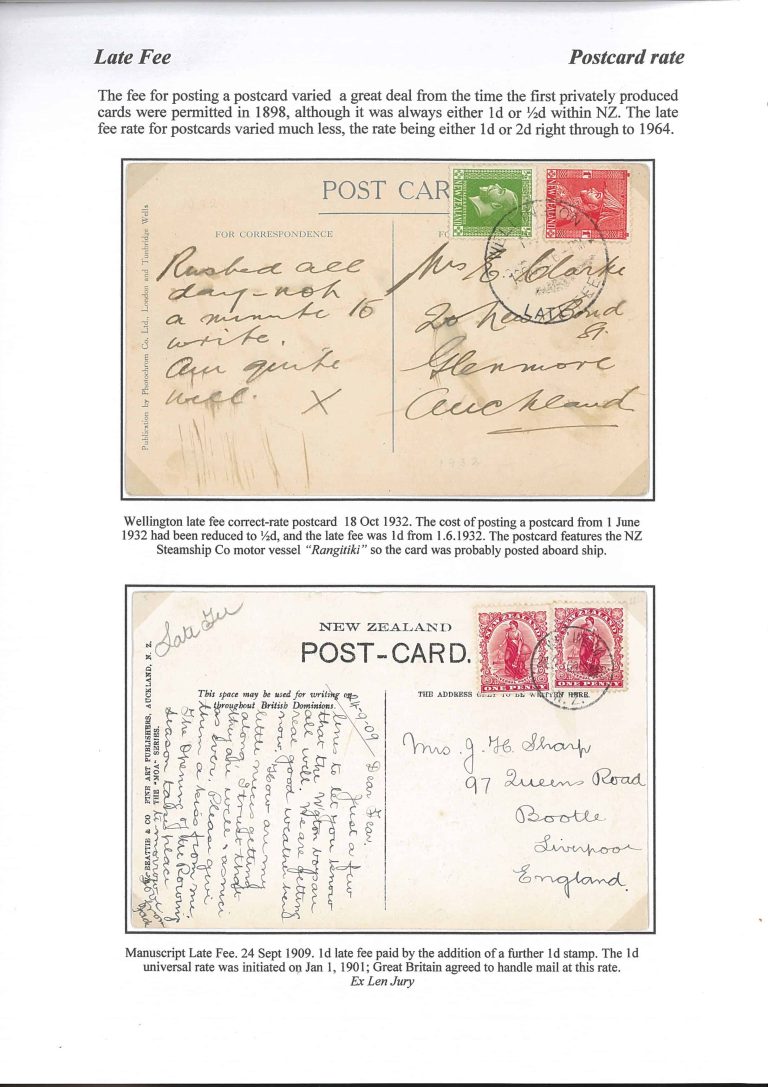 Late Fee
Postcard rate
The fee for posting a postcard varied a great deal from the time the first privately produced
cards were permitted in 1898, although it was always either 1d or ½d within NZ. The late
fee rate for postcards varied much less, the rate being either 1d or 2d right through to 1964.
POST CAR
NEW ZEALAND
NEW ZEALAND
WELLINGTON
LATE FEE
FOR CORRESPONDENCE
Publication by Photochrom Co. Ltd., London and Tunbridge Wells
Rushed all
day - not
a minute to
write.
Am quite
well. X
Mrs E. Clarke
20
St.
Glenmore
Auckland
1932
Wellington late fee correct-rate postcard 18 Oct 1932. The cost of posting a postcard from 1 June
1932 had been reduced to ½d, and the late fee was 1d from 1.6.1932. The postcard features the NZ
Steamship Co motor vessel "Rangitiki" so the card was probably posted aboard ship.
Late Fee
NEW ZEALAND
POST-CARD.
ONE PENNY
ONE PENNY
N.Z.
This space may be used for writing on
throughout British Dominions.
THE ADDRESS ONLY TO BE WRITTEN HERE.
BEATTIE & CO FINE ART PUBLISHERS, AUCKLAND, N. Z.
THE "MOA" SERIES.
24-9-09
Just a few
lines to let you know
that the Wgton boys are
all well. We are getting
real good weather here
now. How are my
little nieces getting
along, I trust that
they are well & as nice
as ever. Please give
them a kiss from me.
The Opening of the Rowing
season takes place
Mrs. J. H. Sharp
97 Queens Road
Bootle
Liverpool
England.
Manuscript Late Fee. 24 Sept 1909. 1d late fee paid by the addition of a further 1d stamp. The 1d
universal rate was initiated on Jan 1, 1901; Great Britain agreed to handle mail at this rate.
Ex Len Jury